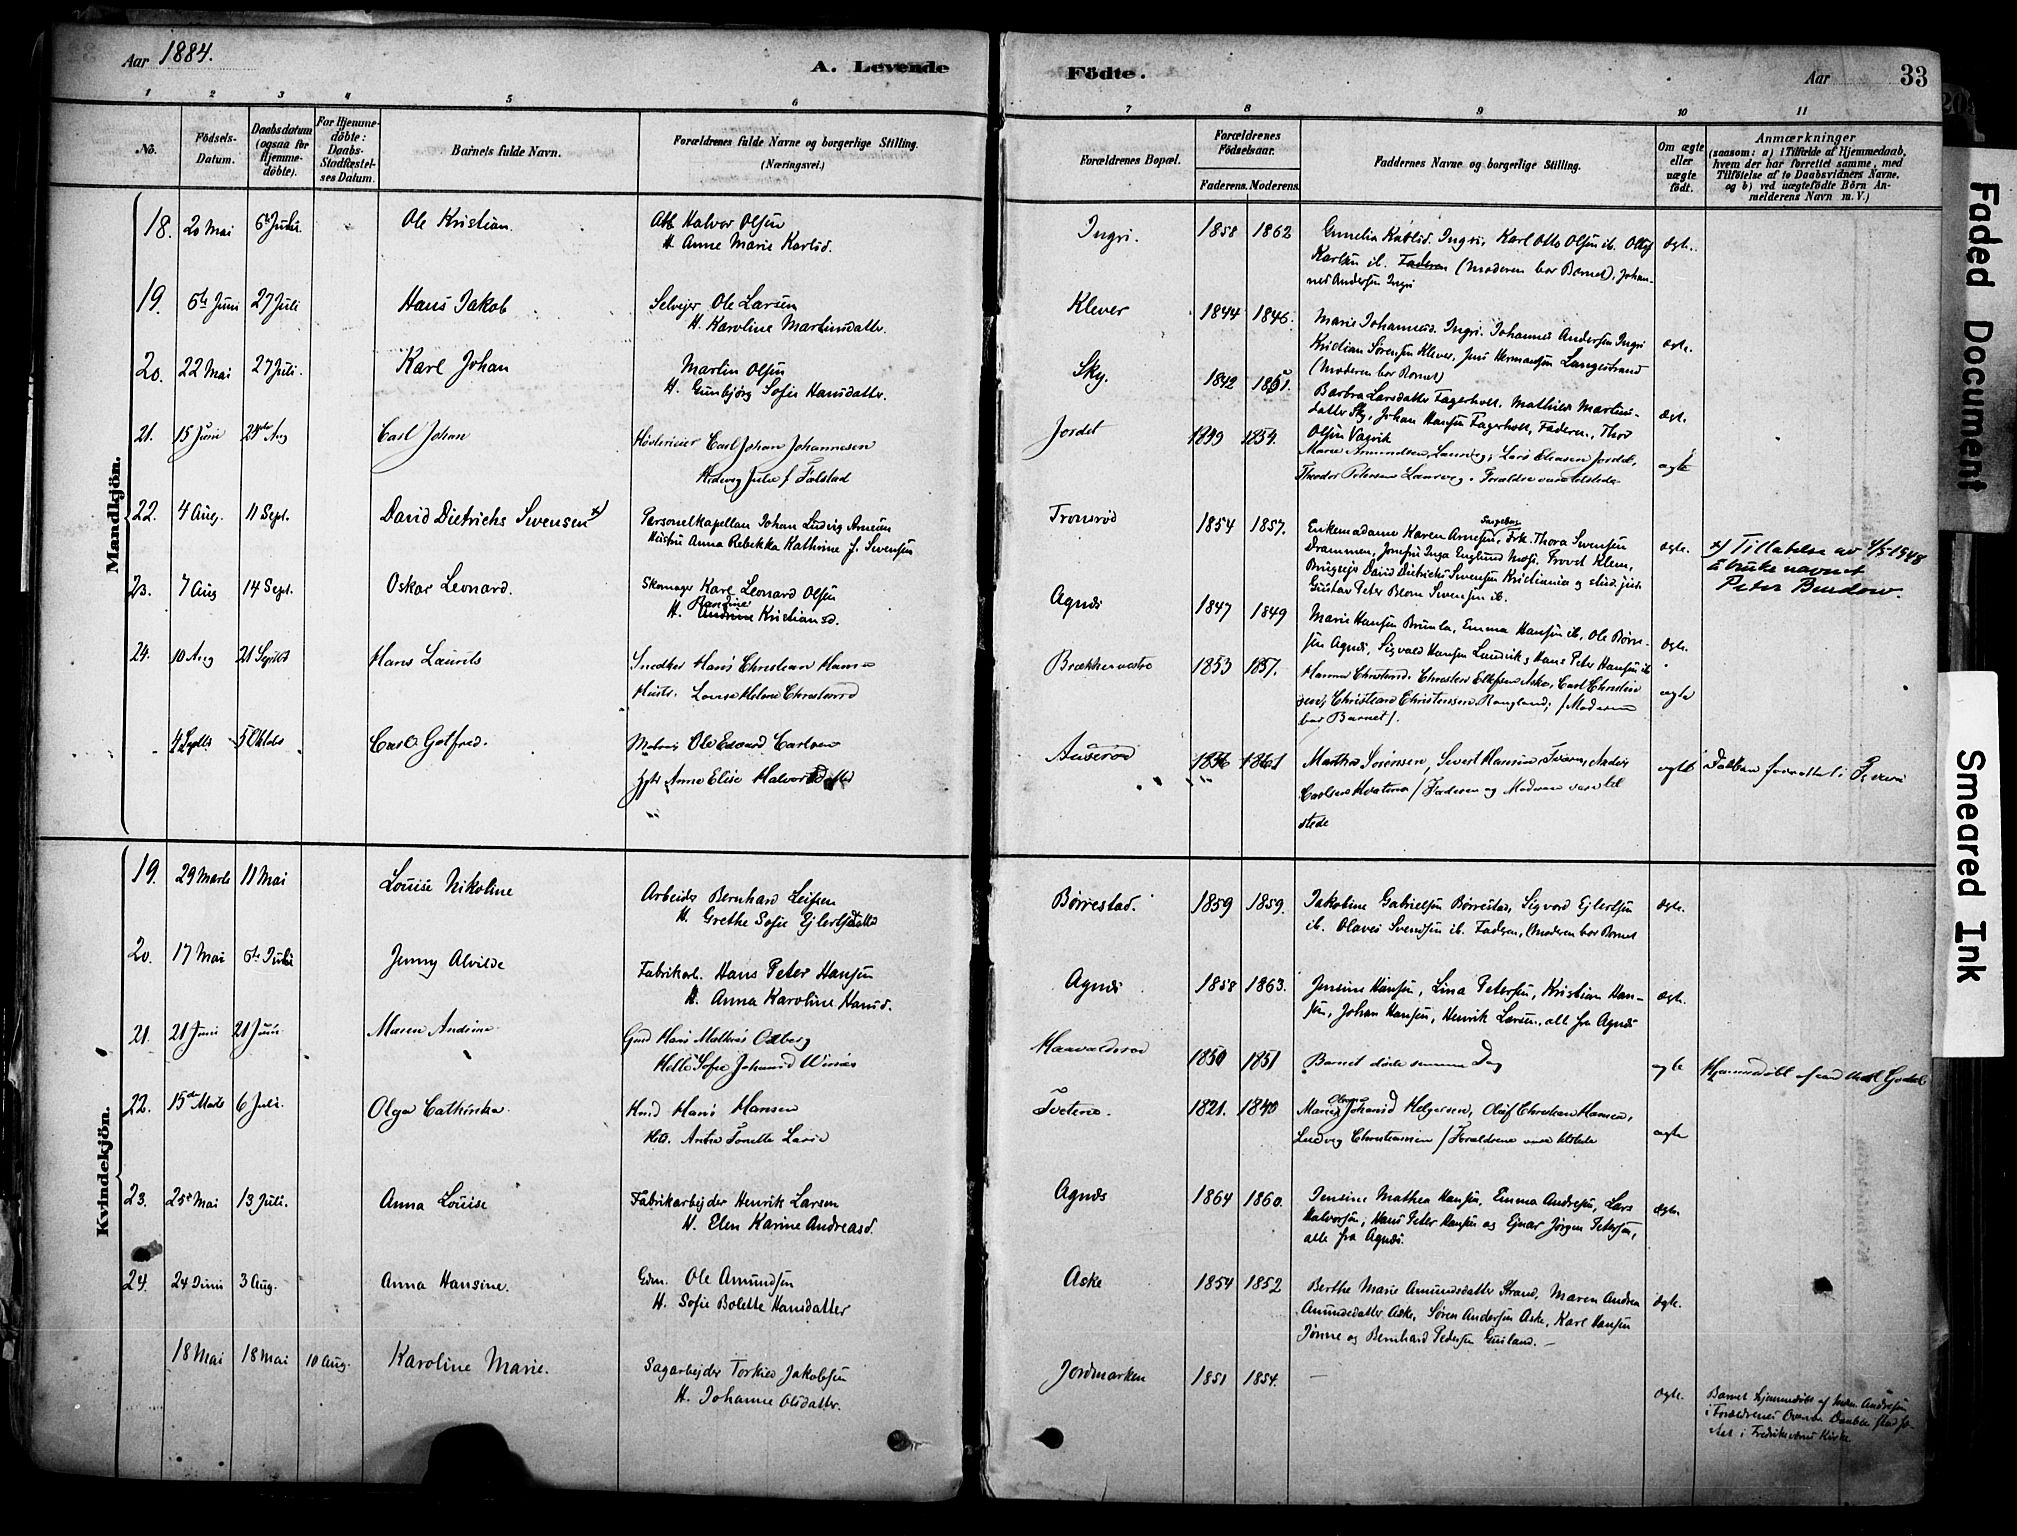 Aar 1884.
A. Levende
Födte.
Aar
33
1 2 3 4 5 6 7 8 9 10 11
No.
Födsels-Datum.
Daabsdatum (ogsaa for Hjemme-döbte).
For Hjemme-döbte: Daabs-Stadfæstel-ses Datum.
Barnets fulde Navn.
Forældrenes fulde Navne og borgerlige Stilling.
(Næringsvei.)
Forældrenes Bopæl.
Forældrenes Födselsaar.
Faderens. Moderens.
Faddernes Navne og borgerlige Stilling.
Om ægte eller uægte födt.
Anmærkninger
(saasom: a) i Tilfælde af Hjemmedaab,
hvem der har forrettet samme, med
Tilföielse af to Daabsvidners Navne,
og b) ved uægtefödte Börn An-
melderens Navn m. V.)
Mandkjön.
18. 20 Mai 6te Juli. Ole Kristian. Halvor Olsen
H. Anne Marie Karlsd.
Ingri. 1858 1862 Gunelia Karlsd. Ingri, Karl Otto Olsen ib.
Karlsen ib. Faderen (Moderen bar Barnet), Johan-
nes Andersen Ingri
ægte.
19. 6te Juni 27 Juli Hans Jakob Selvejer Ole Larsen
H. Karoline Martinsdatter.
Klever 1844 1846. Marie Johannesd. Ingri. Johannes Andersen Ingri
Kristian Sørensen Klever, Jens Hermansen Langestrand
(Moderen bar Barnet)
ægte.
20. 22 Mai 27 Juli. Karl Johan Martin Olsen
H. Gunbjørg Sofie Hansdatter.
Sky. 1842 1851. Barbra Larsdatter Fagerholt, Mathilde Martins-
datter Sky, Johan Hansen Fagerholt, Faderen, Thor
Olsen Vaavik
ægte.
21. 15 Juni 24de Aug Carl Johan Carl Johan Johannesen
Hedevig Julie f Falstad
Jordet 1849 1854. Marie Amundsen, Laurvig, Lars Eliasen Jordet,
Theodor Petersen Laurvig. Forældre vare tilstede
ægte
22. 4 Aug. 11 Sept. David Dietrichs Swensen x) Personelkapellan Johan Ludvig Arnesen
Hustru Anna Rebekka Kathrine f. Swensen
Tronsrød 1854 1857. Enkemadame Karen Arnesen, Sarpsborg Frk. Thora Swensen
Drammen, Jomfru Inga Englund Moss. Provst Klem,
Brugsejer David Dietrichs Swensen Kristiania og stud. jur.
Gustav Peter Blom Swensen ib.
ægte. x) Tillatelse av 4/5-1948
å bruke navnet
Peter Bendow.
23. 7 Aug 14 Sept. Oskar Leonard. Skomager Karl Leonard Olsen
H. Karoline Andrine Kristiansd.
Agnæs 1847 1849 Marie Hansen Brunla, Emma Hansen ib, Ole Børre-
sen Agnæs, Sigvald Hansen Lundvik, Hans Peter Hansen ib
ægte.
24. 10 Aug 21 Septbr Hans Laurits Snedker Hans Christian Hansen
Hustr. Lovise Helene Christensd
1853 1857. Hanna Christiansd. Christen Ellefsen Aske, Carl Christian
sen, Christian Christensen Rongland, (Moderen
bar Barnet).
ægte
4 Septbr 5 Oktobr Carl Gotfred. Matros Ole Edvard Carlsen
Anne Elise Halvorsdatter
Auserød 1856 1861 Marthea Sørensen, Sivert Hansen
Carlsen (Faderen og Moderen vare til
stede
ægte Daaben forrettet i
Kvindekjön.
19. 29 Marts 11 Mai Louise Nikoline Arbeider Bernhard Leifsen
H. Grethe Sofie Ejlertsdatter
Børrestad. 1859 1859. Jakobine Gabrielsen Børrestad, Sigvard Ejlertsen
ib. Olaves Svendsen ib. Faderen, (Moderen bar Barnet
ægte.
20. 17 Mai 6te Juli Jenny Alvilde Fabrikarb. Hans Peter Hansen
H. Anna Karoline Hansd.
Agnæs 1858 1863. Jensine Hansen, Lina Petersen, Kristian Han-
sen, Johan Hansen, Henrik Larsen, alle fra Agnæs
ægte.
21. 21 Juni 21 Juni Maren Andrine Hans Mathias Odberg
Sofie Johansd
1850 1851 Barnet døde samme Dag ægte
22. 15de Marts 6 Juli. Olga Cathinka Hans Hansen
Anthe Tonette Larsd
Tvetene. 1821. 1840 Johansd Helgersen, Oluf Christian Hansen,
Ludvig Christiansen (Forældrene vare tilstede
ægte
23. 25de Mai 13 Juli. Anna Louise Fabrikarbejder Henrik Larsen
H. Elen Karine Andreasd.
Agnæs 1864 1860. Jensine Mathea Hansen, Emma Andresen, Lars
Halvorsen, Hans Peter Hansen og Ejnar Jørgen Petersen,
alle fra Agnæs.
ægte
24. 24 Juni 3 Aug. Anna Hansine. Gdm. Ole Amundsen
H. Sofie Bolette Hansdatter
Aske 1854 1852 Berthe Marie Amundsdatter Strand, Maren Andrea
Amundsdatter Aske, Søren Andersen Aske, Karl Hansen
Jønne og Bernhard Pedersen Guiland. —
ægte.
18 Mai 18 Mai 10 Aug. Karoline Marie. Sagarbejder Torkild Jakobsen
H. Johanne Olsdatter.
Jordmarken 1851 1854. —
ægte. Barnet hjemmedøbt af Andresen
i Forældrenes Daaben stadfæ-
stet i Fredriksværns Kirke
Faded Document
Smeared Ink